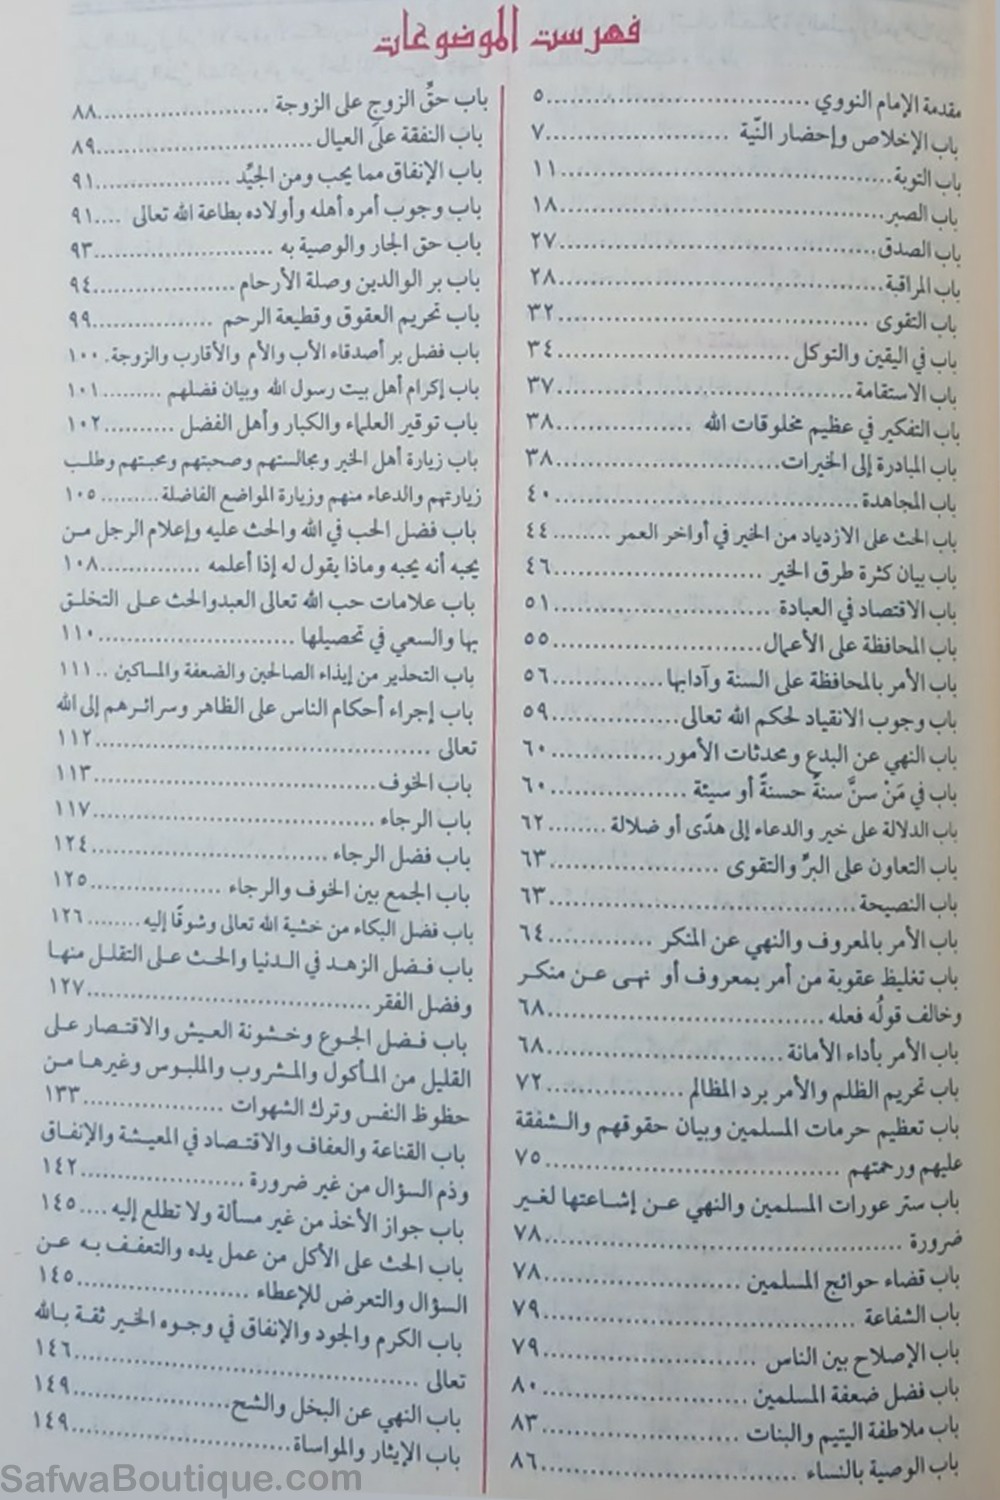 فهرست الموضوعات
مقدمة الإمام النووي ................................ ٥
باب الإخلاص وإحضار النّية ..................... ٧
باب التوبة ........................................ ١١
باب الصبر ........................................ ١٨
باب الصدق ....................................... ٢٧
باب المراقبة ...................................... ٢٨
باب التقوى ....................................... ٣٢
باب في اليقين والتوكل ........................... ٣٤
باب الاستقامة .................................... ٣٧
باب التفكير في عظيم مخلوقات الله ............... ٣٨
باب المبادرة إلى الخيرات ......................... ٣٨
باب المجاهدة ..................................... ٤٠
باب الحث على الازدياد من الخير في أواخر العمر ........ ٤٤
باب بيان كثرة طرق الخير ........................ ٤٦
باب الاقتصاد في العبادة .......................... ٥١
باب المحافظة على الأعمال ........................ ٥٥
باب الأمر بالمحافظة على السنة وآدابها .............. ٥٦
باب وجوب الانقياد لحكم الله تعالى ................ ٥٩
باب النهي عن البدع ومحدثات الأمور .............. ٦٠
باب في مَنْ سنَّ سنةً حسنةً أو سيئة ................ ٦٠
باب الدلالة على خير والدعاء إلى هدًى أو ضلالة ........ ٦٢
باب التعاون على البرِّ والتقوى .................... ٦٣
باب النصيحة ..................................... ٦٣
باب الأمر بالمعروف والنهي عن المنكر ............. ٦٤
باب تغليظ عقوبة من أمر بمعروف أو نهى عن منكر
وخالف قولُه فعله ................................. ٦٨
باب الأمر بأداء الأمانة ............................ ٦٨
باب تحريم الظلم والأمر برد المظالم ................ ٧٢
باب تعظيم حرمات المسلمين وبيان حقوقهم والشفقة
عليهم ورحمتهم ................................... ٧٥
باب ستر عورات المسلمين والنهي عن إشاعتها لغير
ضرورة ........................................... ٧٨
باب قضاء حوائج المسلمين ....................... ٧٨
باب الشفاعة ..................................... ٧٩
باب الإصلاح بين الناس .......................... ٧٩
باب فضل ضعفة المسلمين ........................ ٨٠
باب ملاطفة اليتيم والبنات ........................ ٨٣
باب الوصية بالنساء .............................. ٨٦
باب حقِّ الزوج على الزوجة ...................... ٨٨
باب النفقة على العيال ............................ ٨٩
باب الإنفاق مما يحب ومن الجيِّد .................. ٩١
باب وجوب أمره أهله وأولاده بطاعة الله تعالى .... ٩١
باب حق الجار والوصية به ........................ ٩٣
باب بر الوالدين وصلة الأرحام .................... ٩٤
باب تحريم العقوق وقطيعة الرحم ................. ٩٩
باب فضل بر أصدقاء الأب والأم والأقارب والزوجة . ١٠٠
باب إكرام أهل بيت رسول الله وبيان فضلهم ......... ١٠١
باب توقير العلماء والكبار وأهل الفضل .......... ١٠٢
باب زيارة أهل الخير ومجالستهم وصحبتهم ومحبتهم وطلب
زيارتهم والدعاء منهم وزيارة المواضع الفاضلة ......... ١٠٥
باب فضل الحب في الله والحث عليه وإعلام الرجل من
يحبه أنه يحبه وماذا يقول له إذا أعلمه ............. ١٠٨
باب علامات حب الله تعالى العبدوالحث على التخلق
بها والسعي في تحصيلها ........................... ١١٠
باب التحذير من إيذاء الصالحين والضعفة والمساكين .. ١١١
باب إجراء أحكام الناس على الظاهر وسرائرهم إلى الله
تعالى .............................................. ١١٢
باب الخوف ....................................... ١١٣
باب الرجاء ....................................... ١١٧
باب فضل الرجاء ................................. ١٢٤
باب الجمع بين الخوف والرجاء ................... ١٢٥
باب فضل البكاء من خشية الله تعالى وشوقًا إليه ........ ١٢٦
باب فضل الزهد في الدنيا والحث على التقلل منها
وفضل الفقر ....................................... ١٢٧
باب فضل الجوع وخشونة العيش والاقتصار على
القليل من المأكول والمشروب والملبوس وغيرها من
حظوظ النفس وترك الشهوات .................... ١٣٣
باب القناعة والعفاف والاقتصاد في المعيشة والإنفاق
وذم السؤال من غير ضرورة ....................... ١٤٢
باب جواز الأخذ من غير مسألة ولا تطلع إليه .... ١٤٥
باب الحث على الأكل من عمل يده والتعفف به عن
السؤال والتعرض للإعطاء ........................ ١٤٥
باب الكرم والجود والإنفاق في وجوه الخير ثقة بالله
تعالى .............................................. ١٤٦
باب النهي عن البخل والشح ...................... ١٤٩
باب الإيثار والمواساة .............................. ١٤٩
SafwaBoutique.com